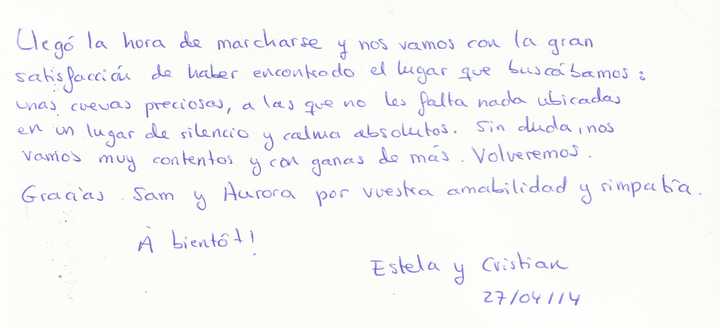 Llegó la hora de marcharse y nos vamos con la gran
satisfacción de haber encontrado el lugar que buscábamos:
unas cuevas preciosas, a las que no les falta nada ubicadas
en un lugar de silencio y calma absolutos. Sin duda, nos
vamos muy contentos y con ganas de más. Volveremos.
Gracias Sam y Aurora por vuestra amabilidad y simpatía.
A bientôt!
Estela y Cristian
27/04/14